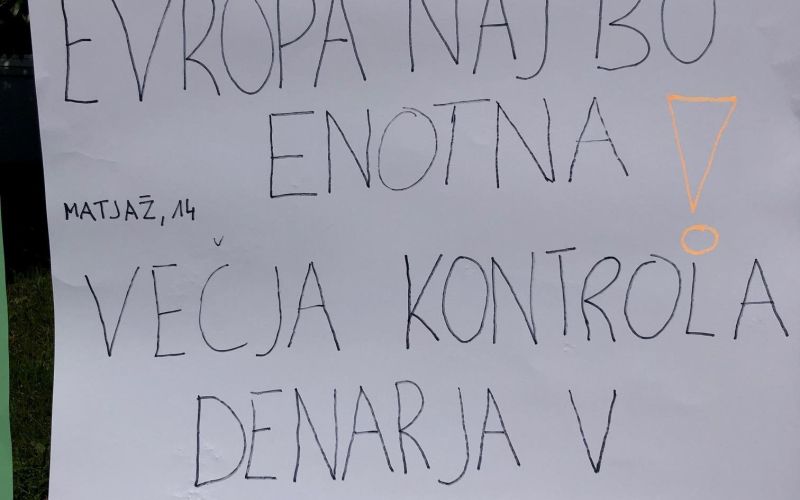 EVROPA NAJ BO
ENOTNA!
MATJAŽ, 14
VEČJA KONTROLA
DENARJA V